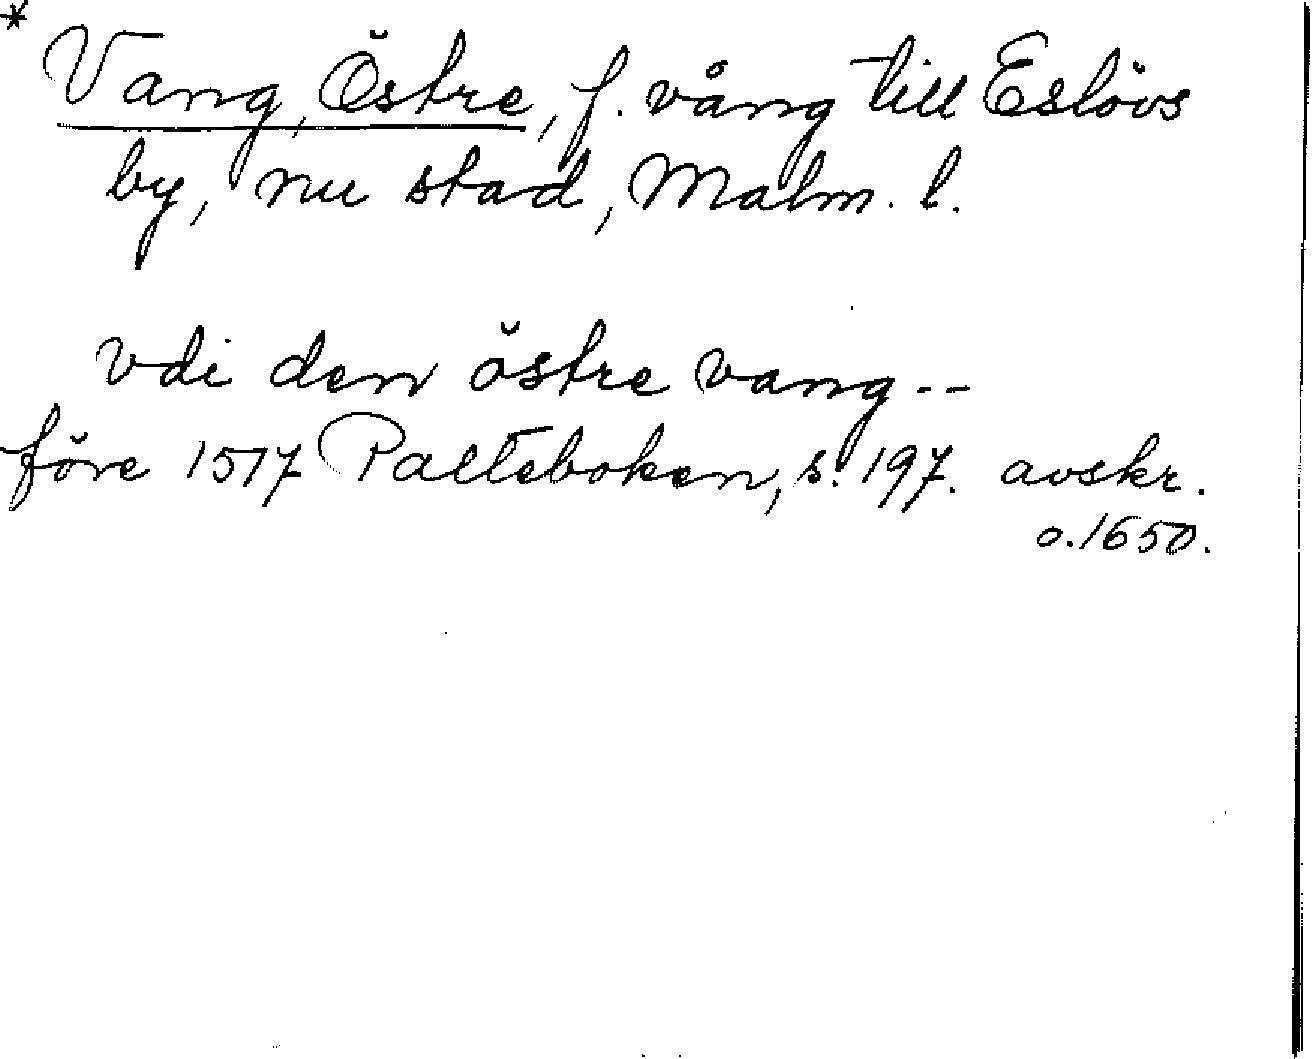 * Vang, Östre, f. vång till Eslövs
by, nu stad, Malm. l.
vdi den östre vang --
före 1517 Palteboken, s. 197. avskr.
o. 1650.